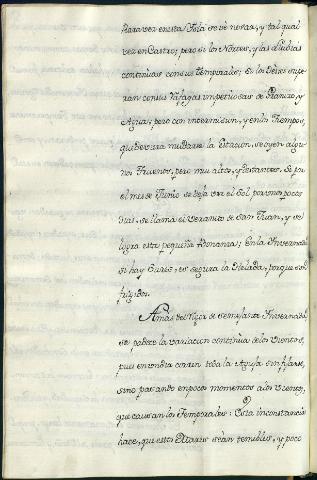 Rara vez en esta Isla se vé nevar, y tal qual
vez en Castro; pero si los Nortes, y las Llubias
continuas con sus temporales; En los Oestes
con sus rafagas impetuosas de Granizo, y
Agua; pero con intermision, y en los Tiempos,
que procura mudarse la Estacion, se oyen algu-
nos Truenos, pero mui altos, y distantes. Si en
el mes de Junio se deja ver el Sol por unos pocos
dias, se llama el Veranito de San Juan, y se
logra esta pequeña bonanza; en la Invernada
si hay Sures, es segura la Helada, porque son
frigidos.
Amas del rigor de semejante Invernada
se padece la variacion continua de los Vientos,
pues en un dia corren toda la Aguja sin fijarse,
sino pasando en pocos momentos a los Vientos,
que causan los Temporales: Esta inconstancia
hace, que estos Mares sean temibles, y poco